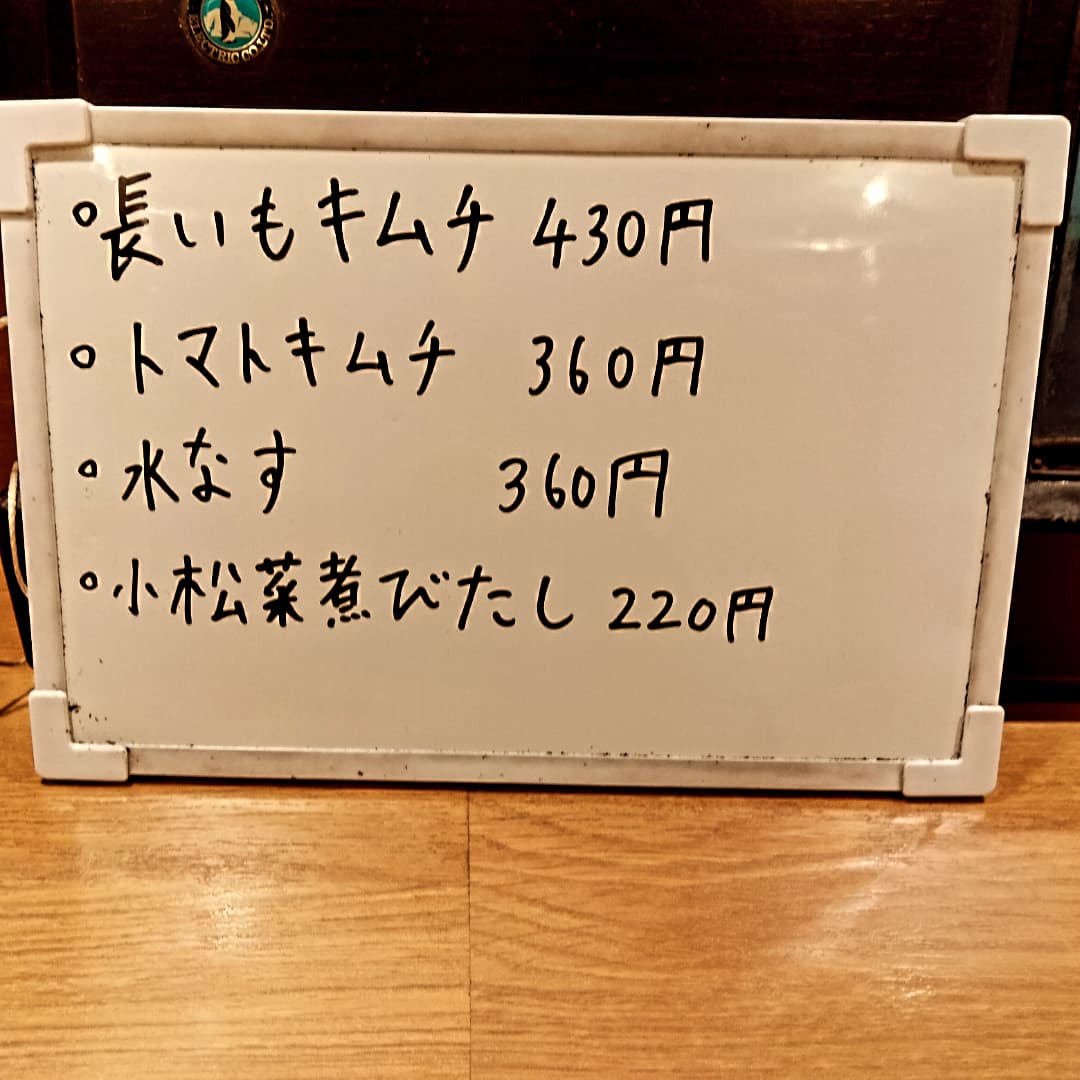 ELECTRIC CO.LTD.
。長いもキムチ 430円
。トマトキムチ 360円
。水なす 360円
。小松菜煮びたし 220円